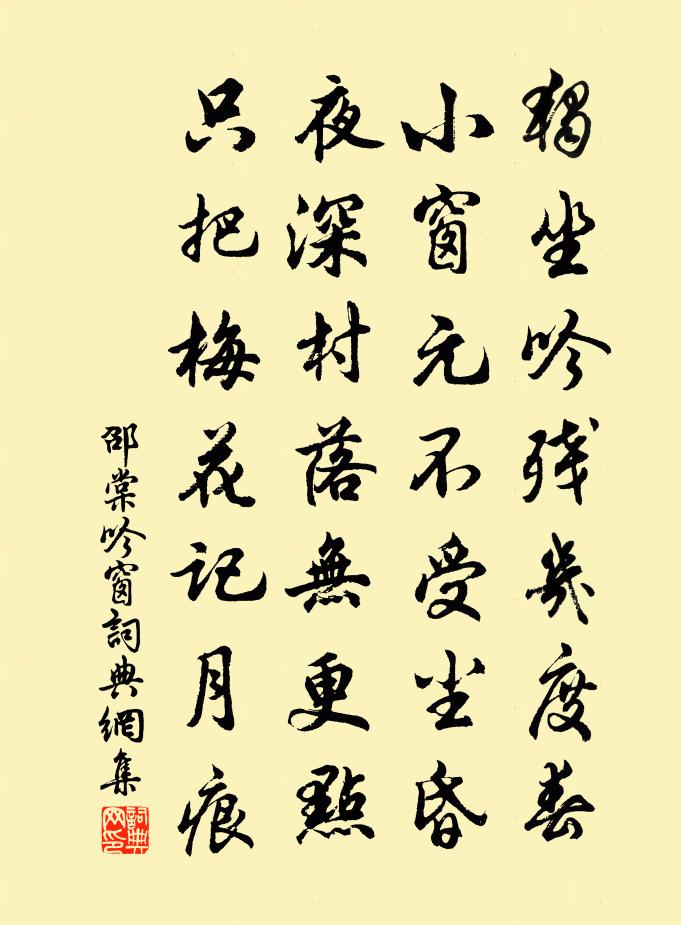 獨坐吟殘幾度春
小窗元不受尘昏
夜深村落無更點
只把梅花記月痕
邵棠吟窗詞典網集
詞典网印